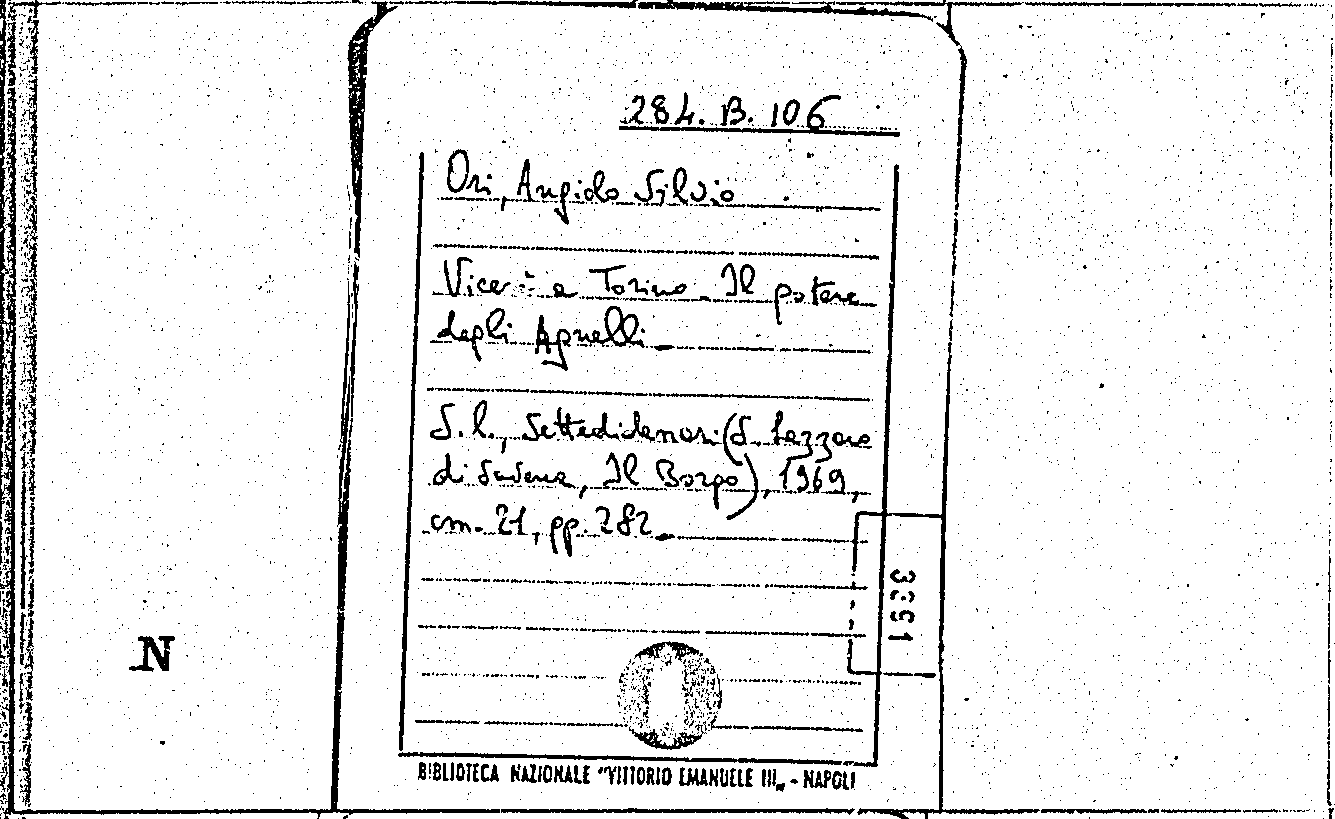 284. B. 106
Ori, Angiolo Silvio
Vicerè a Torino. Il potere
degli Agnelli.
S. l., Settedidenari (S. Lazzaro
di Savena, Il Borgo), 1969,
cm. 21, pp. 282.
3391
N
BIBLIOTECA NAZIONALE "VITTORIO EMANUELE III„ - NAPOLI